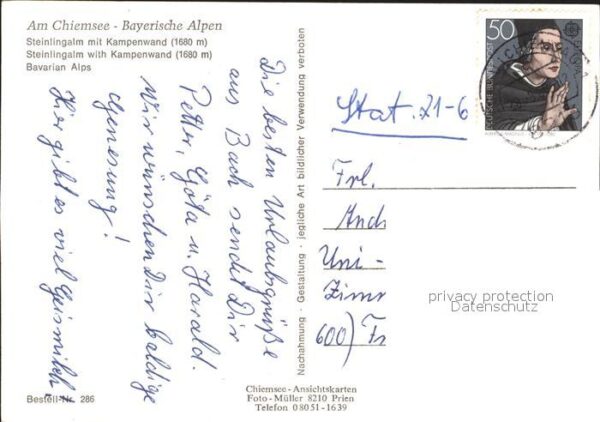 Am Chiemsee - Bayerische Alpen
Steinlingalm mit Kampenwand (1680 m)
Steinlingalm with Kampenwand (1680 m)
Bavarian Alps
Die besten Urlaubsgrüße
aus Bach sendet Dir
Petter, Göta u. Harald.
Wir wünschen Dir baldige
Genesung!
Hier gibt es viel Geismilch.
Bestell-Nr. 286
Nachahmung · Gestaltung · jegliche Art bildlicher Verwendung verboten
Chiemsee-Ansichtskarten
Foto-Müller 8210 Prien
Telefon 08051-1639
50
DEUTSCHE BUNDESPOST
Stat. 21-6
Frl.
And
Uni-
Zimr
600) Fr
privacy protection
Datenschutz